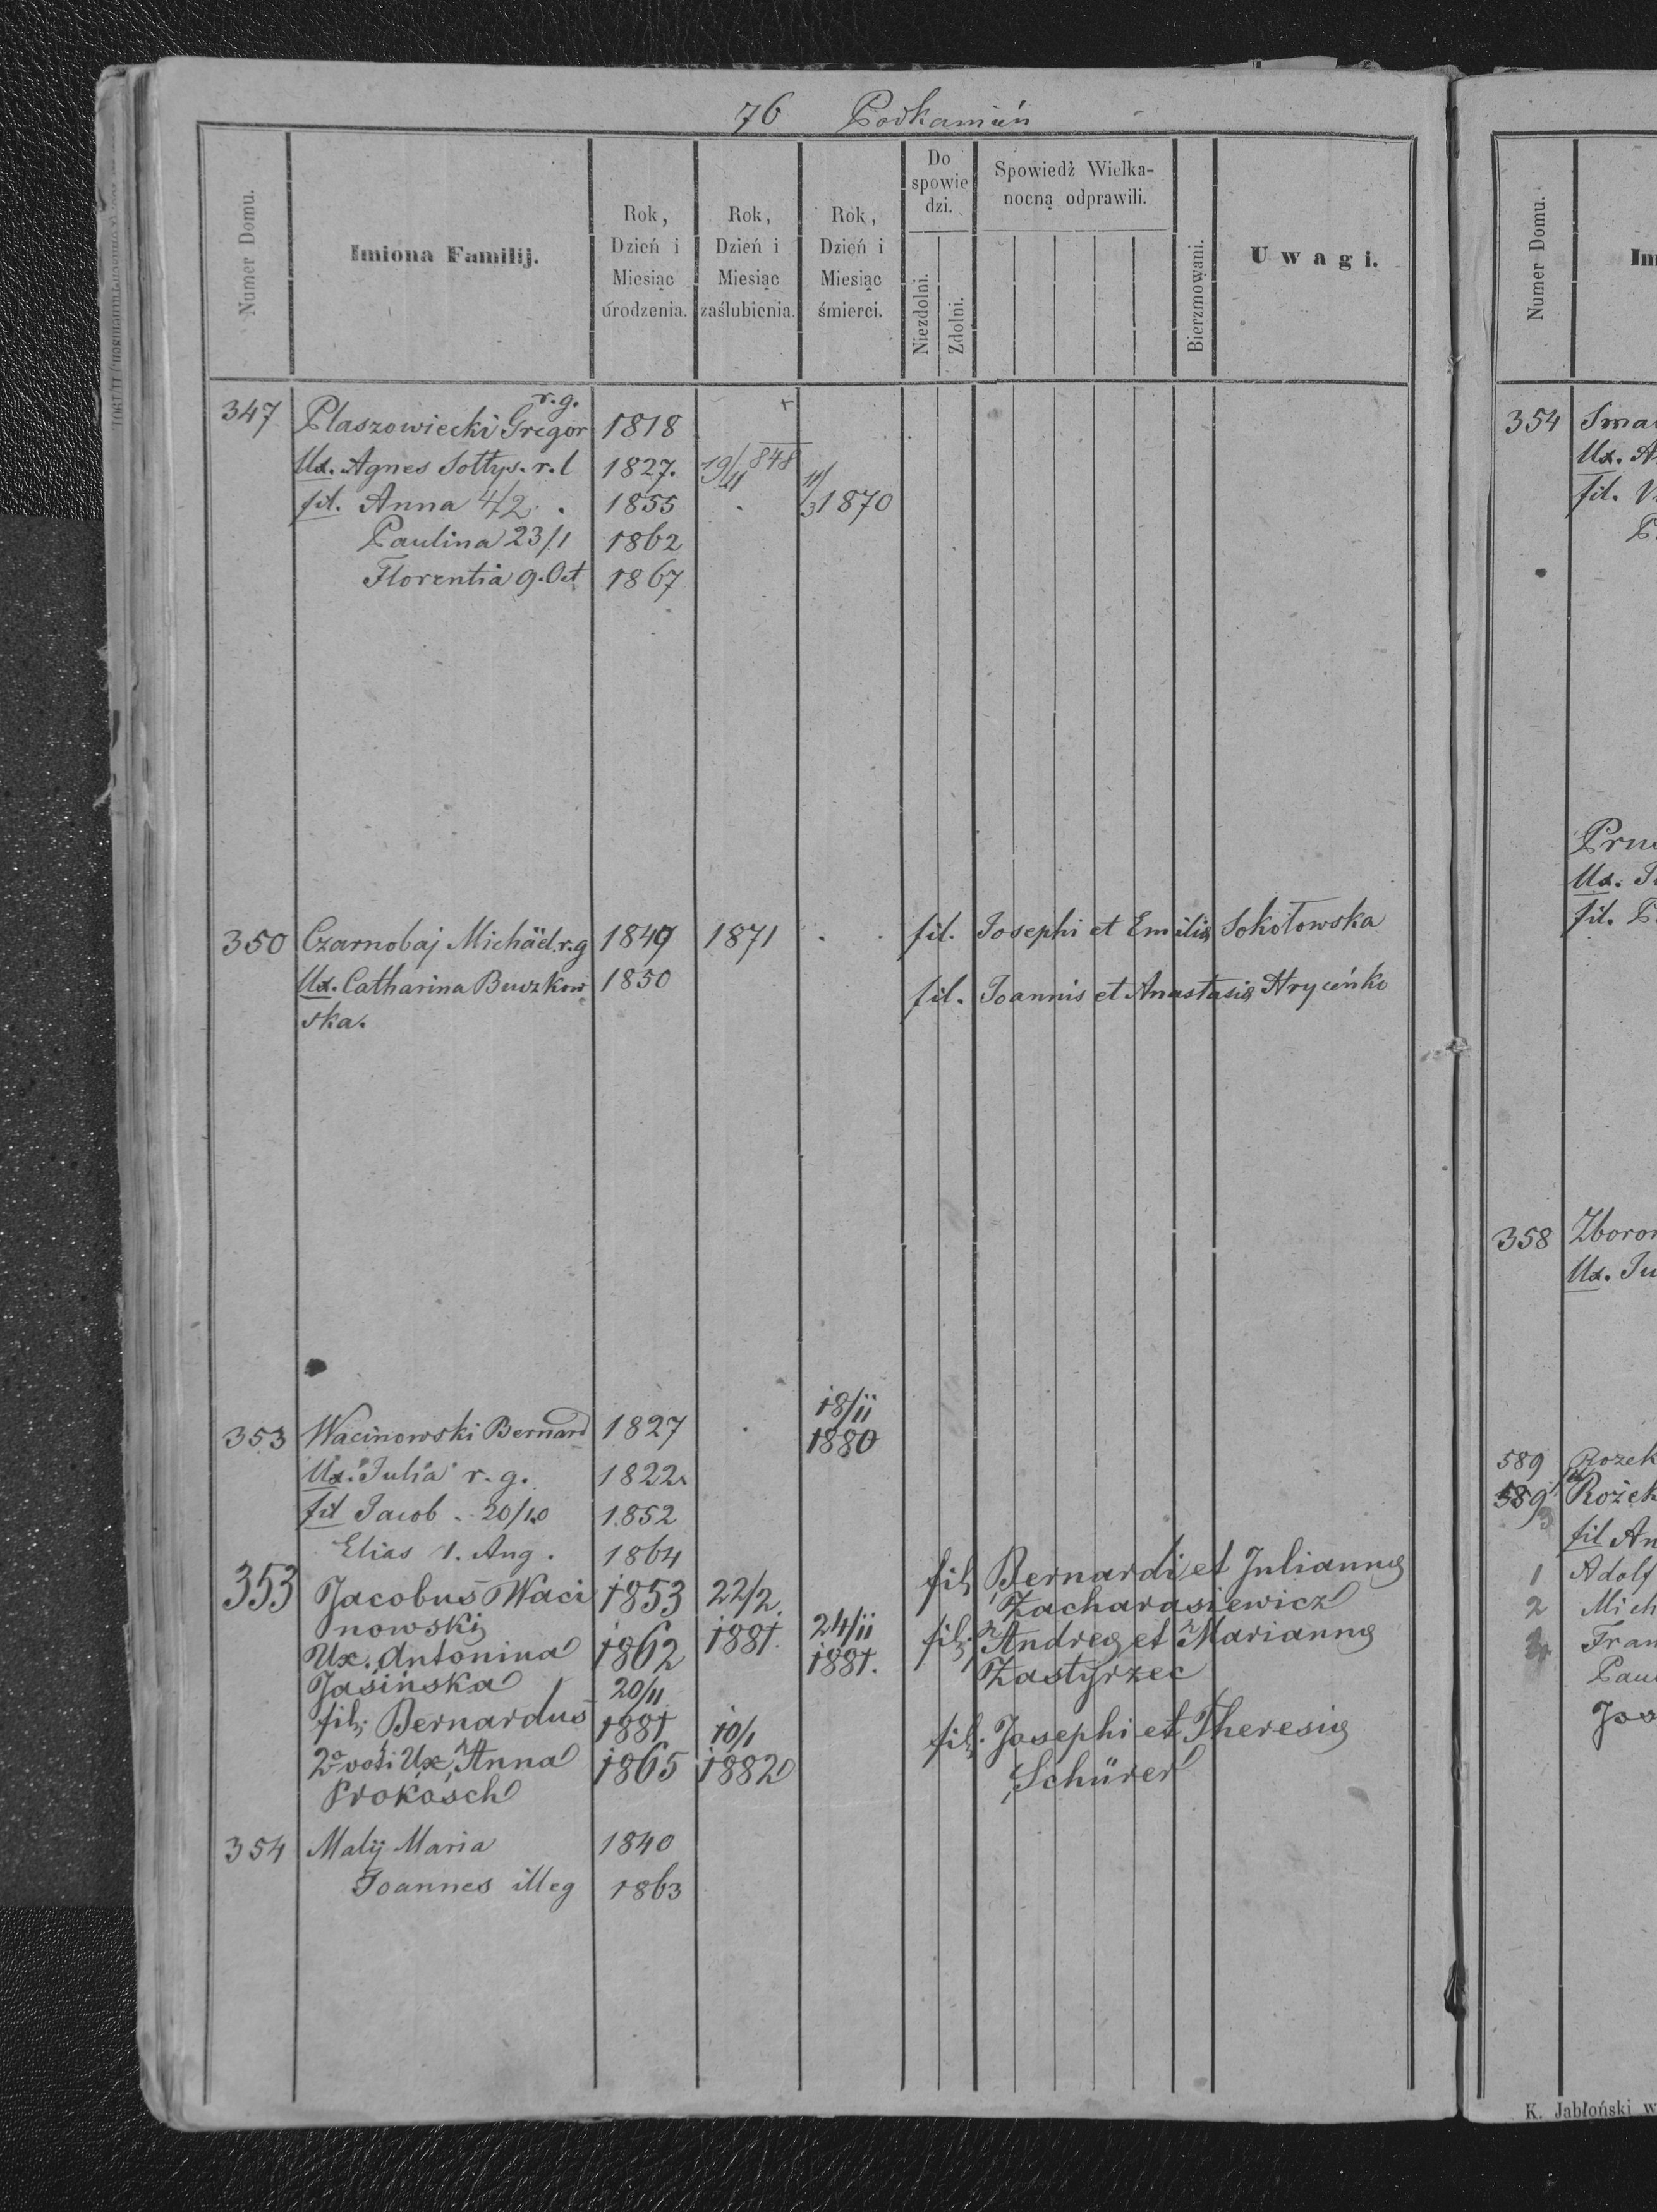 76 Podkamień
Numer Domu.
Imiona Familij.
Rok, Dzień i Miesiąc urodzenia.
Rok, Dzień i Miesiąc zaślubienia.
Rok, Dzień i Miesiąc śmierci.
Do spowie dzi.
Niezdolni.
Zdolni.
Spowiedź Wielka- nocną odprawili.
Bierzmowani.
Uwagi.
r.g.
347 Płaszowiecki Gregor 1818
Ux. Agnes Sołtys. r. l 1827. 19/11 848
fil. Anna 4/2. 1855 11/3 1870
Paulina 23/1 1862
Florentia 9. Oct 1867
350 Czarnobaj Michäel. r. g 1849 1871 fil. Josephi et Emilia Sokołowska
Ux. Catharina Buczkow 1850 fil. Joannis et Anastasia Hryćeńko
ska.
18/11
353 Wacinowski Bernard 1827 1880
Ux. Julia r. g. 1822.
fil Jacob 20/10 1852
Elias 1. Aug. 1864
353 Jacobus Waci 1853 22/2. fil. Bernardi et Julianna
nowski 1881. Zacharasiewicz
Ux. Antonina 1862 24/11 1881. fil. Andrea et Marianna
Jasińska 20/11 Zastyrzec
fil. Bernardus 1881 10/1
2o voti Ux. Anna 1865 1882 fil. Josephi et Theresia
Prokosch Schürer
354 Malÿ Maria 1840
Joannes illeg 1863
Numer Domu.
Im
354 Sma
Ux. A
fil. V
P
Pru
Ux. J
fil. P
358 Zboro
Ux. Ju
589 Rozek
589 Rożek
fil An
1 Adolf
2 Mich
3 Fran
Pau
Jos
K. Jabłoński w